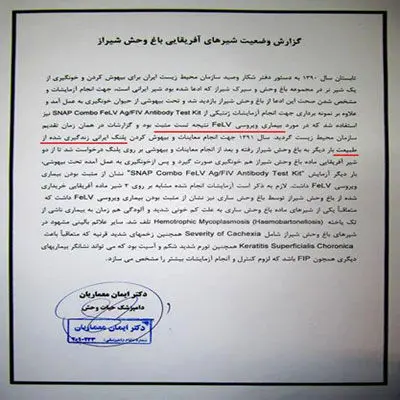 گزارش وضعیت شیرهای آفریقایی باغ وحش شیراز
تابستان سال ۱۳۹۰ به دستور دفتر شکار وصید سازمان محیط زیست ایران برای بیهوش کردن و خونگیری از
یک شیر نر در مجموعه باغ وحش و سیرک شیراز که ادعا شده بود شیر ایرانی است، جهت انجام آزمایشات و
مشخص شدن صحت این ادعا از باغ وحش شیراز بازدید شد و تحت بیهوشی از حیوان خونگیری به عمل آمد و
علاوه بر نمونه برداری جهت انجام آزمایشات ژنتیکی از SNAP Combo FeLV Ag/FIV Antibody Test Kit نیز
استفاده شد که در مورد بیماری ویروسی FeLV نتیجه تست مثبت بود و گزارشات در همان زمان تقدیم
سازمان محیط زیست گردید. سال ۱۳۹۱ جهت انجام معاینات و بیهوش کردن پلنگ ایرانی زندگیری شده از
طبیعت بار دیگر به باغ وحش شیراز رفته و بعد از انجام معاینات و بیهوشی بر روی پلنگ درخواست شد تا از دو
شیر آفریقایی ماده باغ وحش شیراز هم خونگیری صورت گیرد و پس ازخونگیری به عمل آمده تحت بیهوشی،
بار دیگر آزمایش "SNAP Combo FeLV Ag/FIV Antibody Test Kit" نشان از مثبت بودن بیماری
ویروسی FeLV داشت. لازم به ذکر است آزمایشات انجام شده مشابه بر روی ۲ شیر ماده آفریقایی خریداری
شده از باغ وحش شیراز توسط باغ وحش ساری نیز نشان از مثبت بودن بیماری ویروسی FeLV داشت که
متعاقباً یکی از شیرهای ماده باغ وحش ساری به علت کم خونی شدید و آلودگی هم زمان به بیماری ناشی از
تک یاخته Hemotrophic Mycoplasmosis (Haemobartonellosis) تلف شد. سایر علائم بالینی مشهود در
شیرهای باغ وحش شیراز شامل Severity of Cachexia همچنین زخمهای شدید قرنیه که متعاقباً باعث
Keratitis Superficialis Choronica همچنین تورم شدید شکم و آسیت بود که می تواند نشانگر بیماریهای
دیگری همچون FIP باشد که لزوم کنترل و انجام آزمایشات بیشتر را مشخص می سازد.
دکتر ایمان معماریان
دامپزشک حیات وحش
دکتر ایمان معماریان